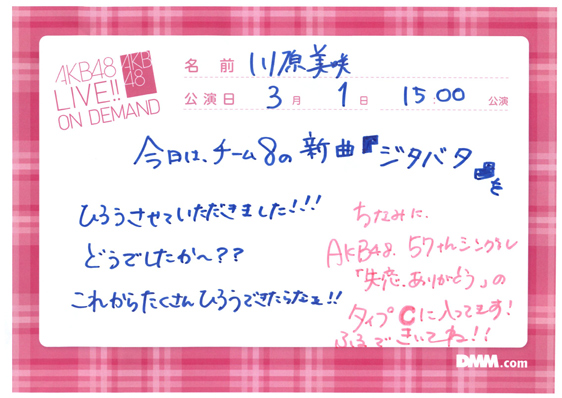 AKB48
LIVE!!
ON DEMAND
AKB
48
名前 川原美咲
公演日 3月 1日 15:00 公演
今日は、チーム8の新曲『ジタバタ』を
ひろうさせていただきました!!!
どうでしたか〜??
これからたくさんひろうできたらなぁ!!
ちなみに、
AKB48、57thシングル
「失恋、ありがとう」の
タイプCに入ってます!
きいてね!!
DMM.com